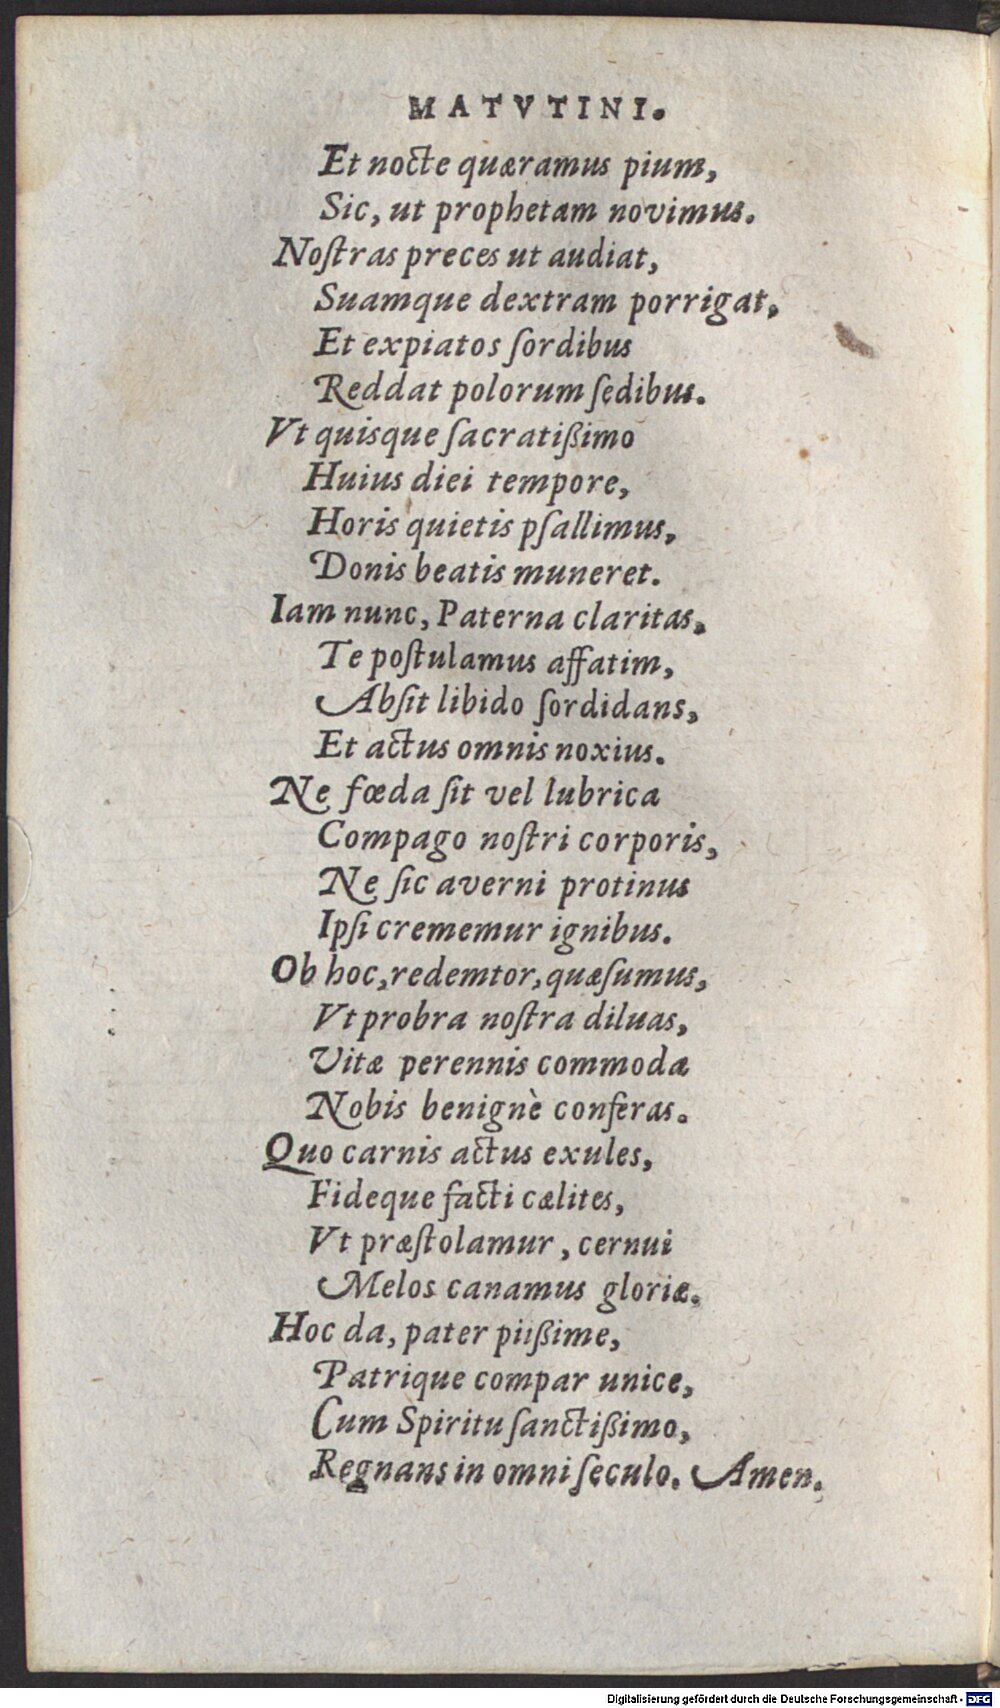 MATVTINI.
Et nocte quæramus pium,
Sic, ut prophetam novimus.
Noſtras preces ut audiat,
Suamque dextram porrigat,
Et expiatos ſordibus
Reddat polorum ſedibus.
Vt quisque ſacratißimo
Huius diei tempore,
Horis quietis pſallimus,
Donis beatis muneret.
Iam nunc, Paterna claritas,
Te poſtulamus affatim,
Abſit libido ſordidans,
Et actus omnis noxius.
Ne fœda ſit vel lubrica
Compago noſtri corporis,
Ne ſic averni protinus
Ipſi crememur ignibus.
Ob hoc, redemtor, quæſumus,
Vt probra noſtra diluas,
Vitæ perennis commoda
Nobis benignè conferas.
Quo carnis actus exules,
Fideque facti cælites,
Vt præſtolamur, cernui
Melos canamus gloriæ.
Hoc da, pater piißime,
Patrique compar unice,
Cum Spiritu ſanctißimo,
Regnans in omni ſeculo. Amen.
Digitalisierung gefördert durch die Deutsche Forschungsgemeinschaft - DFG